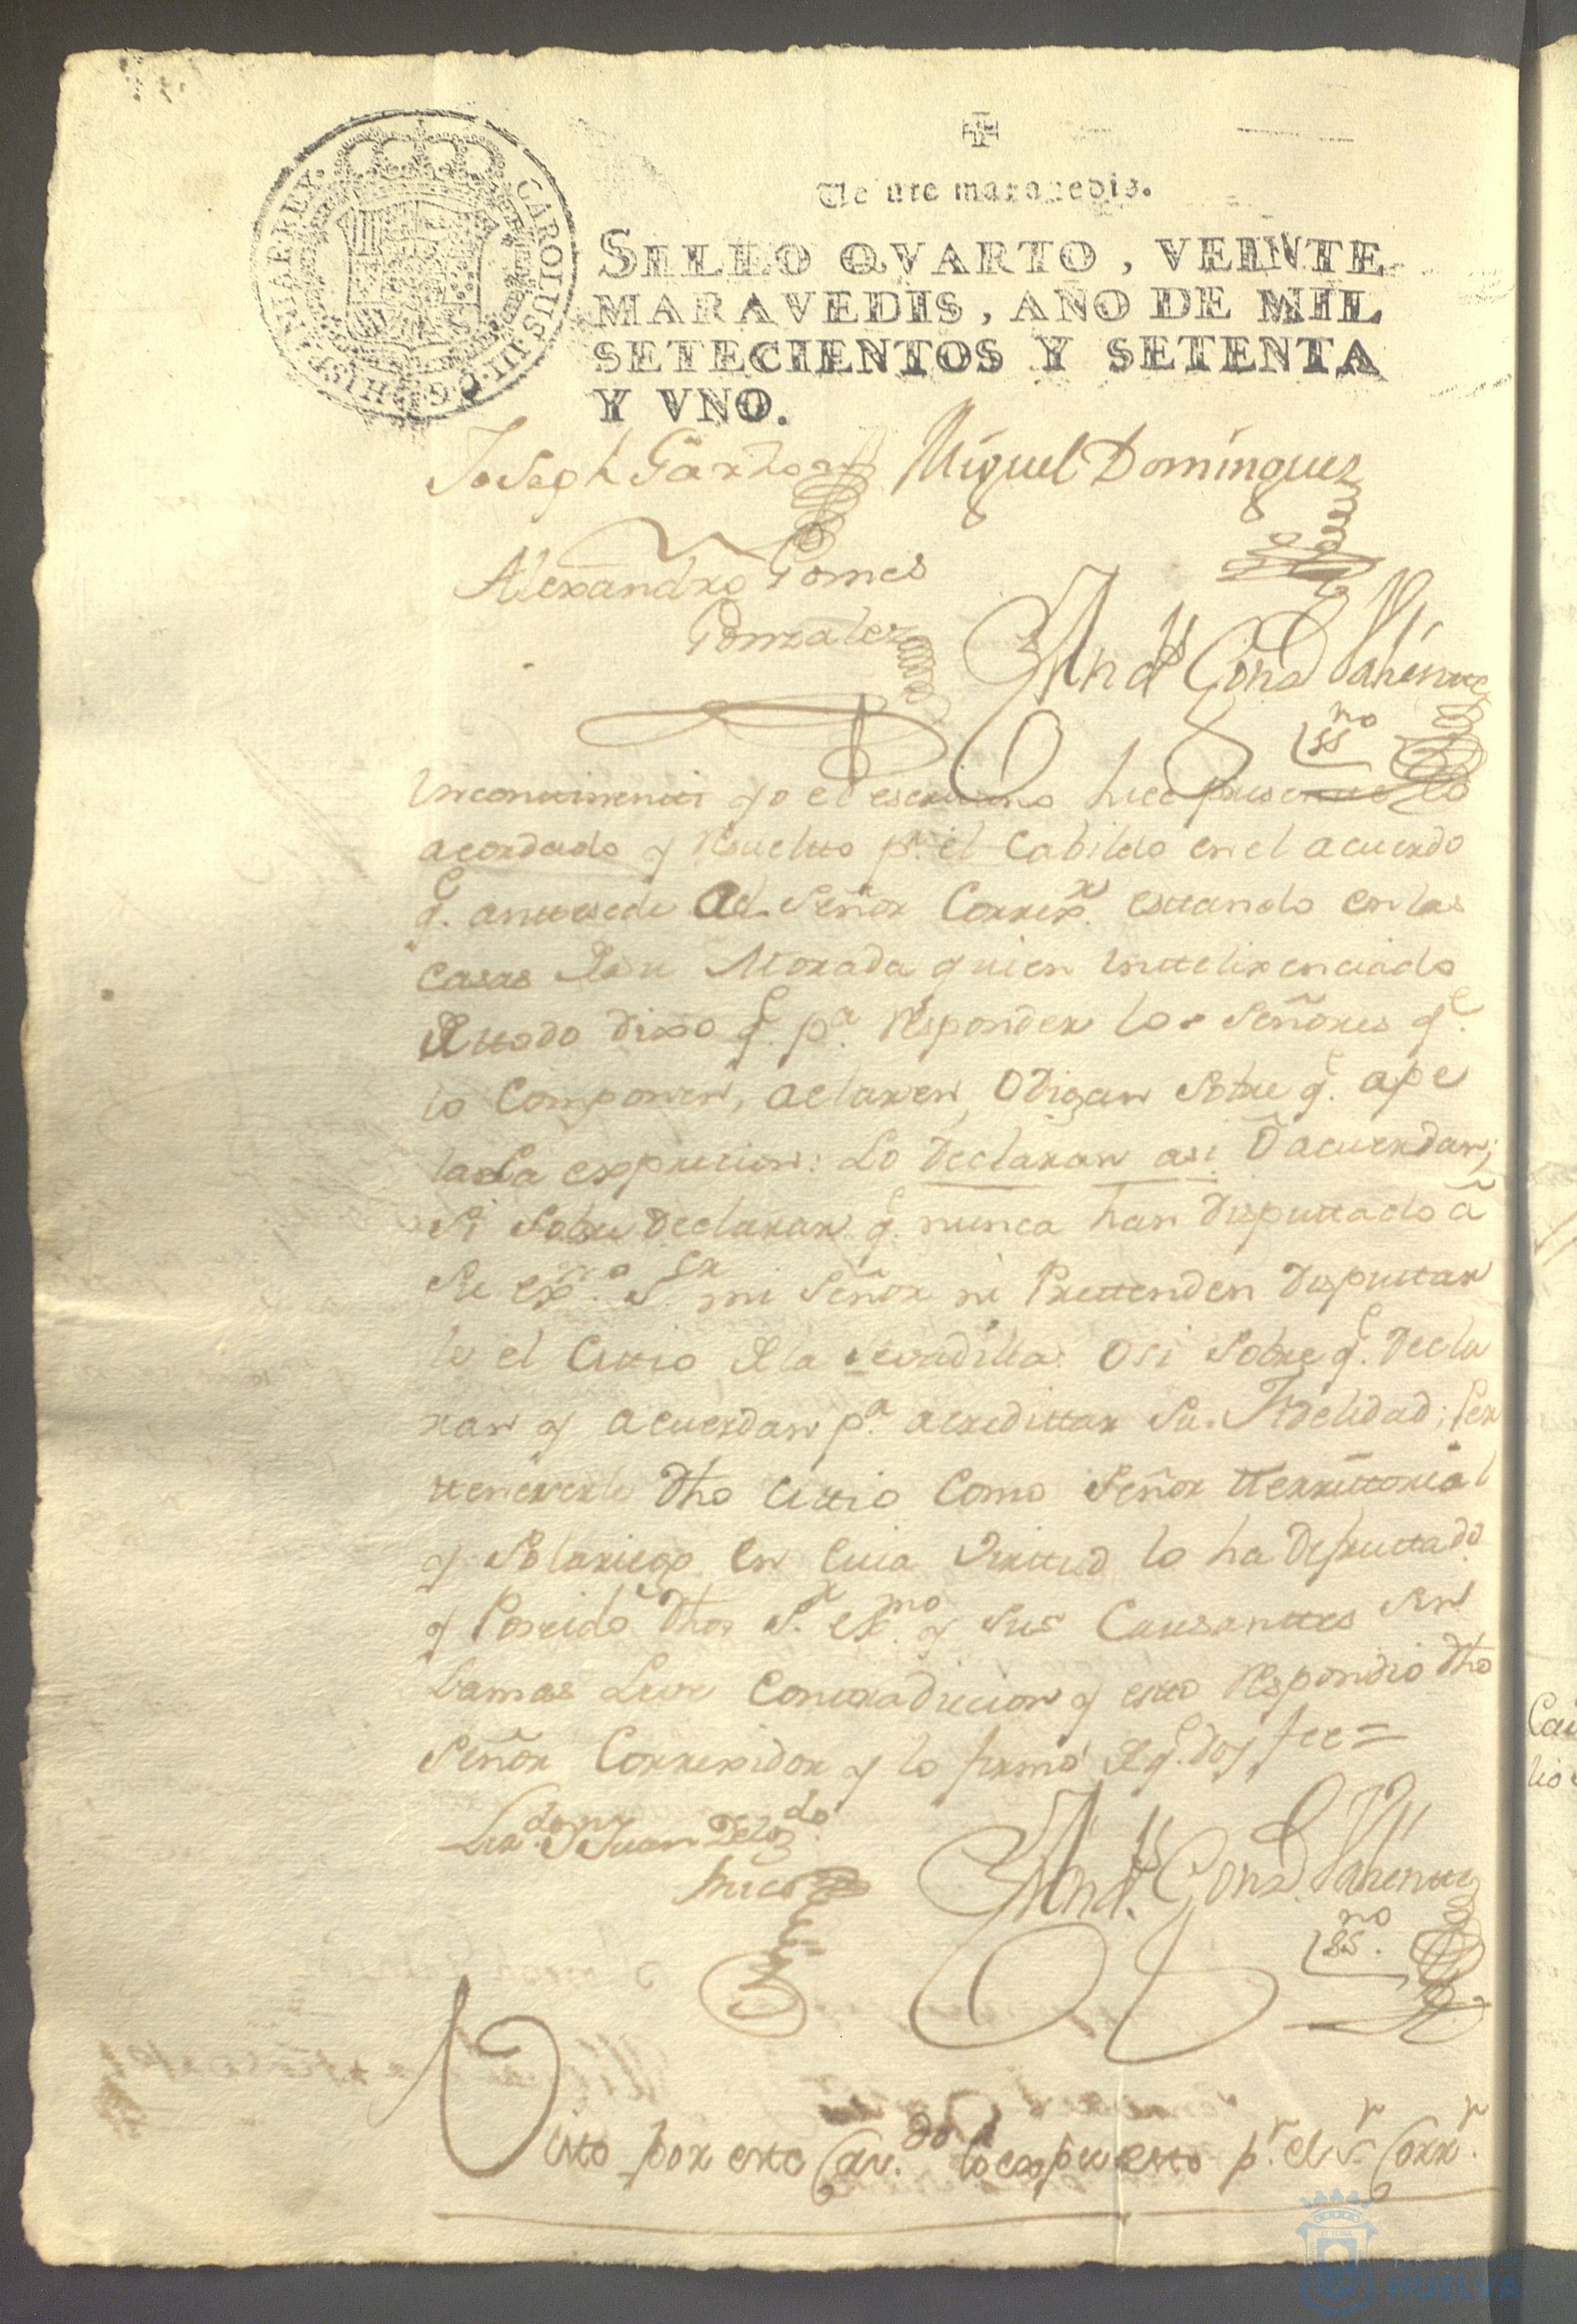 Veinte maravedis.
CAROLUS III D G HISPANIAR REX
SELLO QVARTO, VEINTE
MARAVEDIS, AÑO DE MIL
SETECIENTOS Y SETENTA
Y VNO.
Joseph Garzon Miguel Dominguez
Alexandro Gomes
Gonzalez
And.s Gonz
ssno
Yncontinenti yo el escriuano hice presente lo
acordado y resuelto pr. el Cabildo en el acuerdo
q.e anttesede al Señor Correxr. estando en las
casas de su Morada quien Ynttelixenciado
de ttodo dixo q.e pa. responder los Señores q.e
lo Componen, aclaren, o digan sobre q.e ape
la la expresion: Lo declaran asi o acuerdan;
si sobre declarar q.e nunca han disputtado â
su exmo. Sr. mi Señor ni Prettenden disputtar
le el Cittio de la : o si sobre q.e decla
ran y acuerdan pa. acredittar su Fidelidad; Per
ttenecerle dho Cittio como Señor tterrittorial
y Solariego en cuia virttud lo ha disfruttado
y Poseido dho Sr. exmo. y sus Causanttes sin
Jamas Leve Contradicion y esto respondio dho
Señor Correxidor y lo firmó de q.e doy fee=
Lizdo. Dn. Juan Delgdo.
And.s Gonz
ssno.
Visto por este Cavdo. lo expuesto pr. el Sr. Corrr.
HUELVA